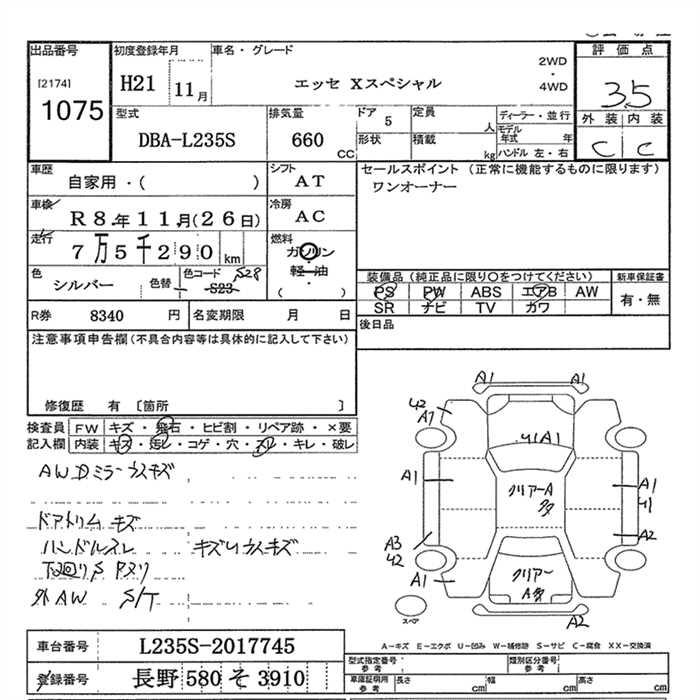 出品番号
[2174]
1075
初度登録年月
H21 11月
車名・グレード
エッセ Xスペシャル
2WD
・
4WD
評価点
3.5
外装 内装
C C
型式
DBA-L235S
排気量
660 CC
ドア 5
形状
定員 人
積載 kg
ディーラー・並行
モデル年式 年
ハンドル 左・右
車歴
自家用・( )
シフト
AT
セールスポイント (正常に機能するものに限ります)
ワンオーナー
車検
R8年11月(26日)
冷房
AC
走行
7万5千290km
燃料
ガソリン
軽・油
・
( )
色
シルバー
色替
色コード S28
S23
装備品(純正品に限り○をつけてください)
PS PW ABS エアB AW
SR ナビ TV カワ
新車保証書
有・無
R券 8340 円
名変期限 月 日
後日品
注意事項申告欄(不具合内容等は具体的に記入して下さい)
修復歴 有 〔箇所 〕
検査員 FW キズ・飛石・ヒビ割・リペア跡・×要
記入欄 内装 キズ・汚レ・コゲ・穴・スレ・キレ・破レ
AW Dミラー ウスキズ
ドアトリム キズ
ハンドルスレ キズU ウスキズ
下廻りS Pヌリ
外AW S/T
A1 A1
42
A7
41A1
A1
クリアーA
A1
41
A3
42
A2
A1
クリアー
A
A2
スペア
A-キズ E-エクボ U-凹み W-補修跡 S-サビ C-腐食 XX-交換済
車台番号 L235S-2017745
登録番号 長野 580 そ 3910
型式指定番号
参考
類別区分番号
参考
車庫証明用
参考
長さ cm
幅 cm
高さ cm